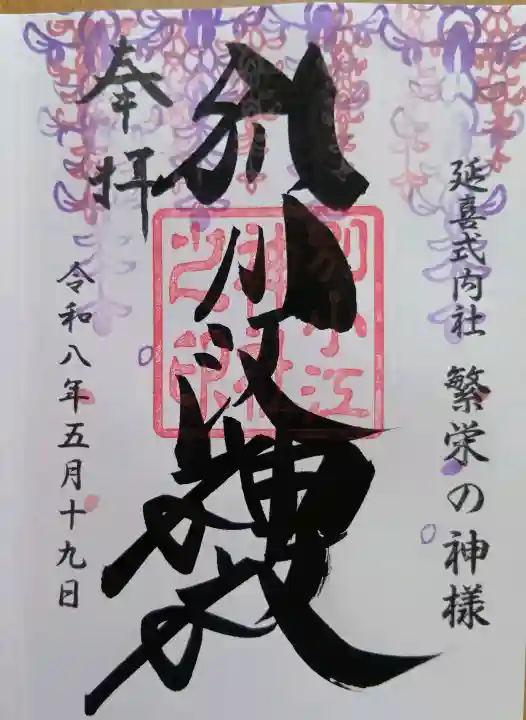 延喜式内社 繁栄の神様
別小江神社
別小江神社之印
奉拝
令和八年五月十九日